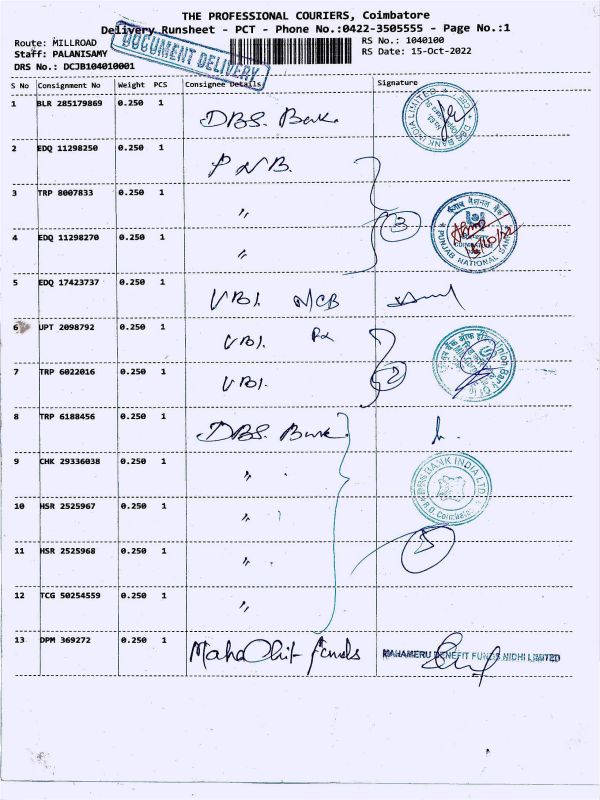 THE PROFESSIONAL COURIERS, Coimbatore
Delivery Runsheet - PCT - Phone No.:0422-3505555 - Page No.:1
Route: MILLROAD
RS No.: 1040100
Staff: PALANISAMY
RS Date: 15-Oct-2022
DRS No.: DCJB104010001
DOCUMENT DELIVERY
S No Consignment No Weight PCS Consignee Details Signature
1 BLR 285179869 0.250 1 DBS. Bank
DBS BANK INDIA LIMITED
2 EDQ 11298250 0.250 1 P N B.
3 TRP 8007833 0.250 1 "
3
पंजाब नैशनल बैंक
PUNJAB NATIONAL BANK
4 EDQ 11298270 0.250 1 "
5 EDQ 17423737 0.250 1 VBI. MCB
6 UPT 2098792 0.250 1 VBI.
7 TRP 6022016 0.250 1 VBI.
2
Union Bank Of
8 TRP 6188456 0.250 1 DBS. Bank
9 CHK 29336038 0.250 1 "
DBS BANK INDIA LTD
R.O Coimbatore
10 HSR 2525967 0.250 1 "
11 HSR 2525968 0.250 1 "
5
12 TCG 50254559 0.250 1 "
13 DPM 369272 0.250 1 Maha funds
MAHAMERU BENEFIT FUNDS NIDHI LIMITED